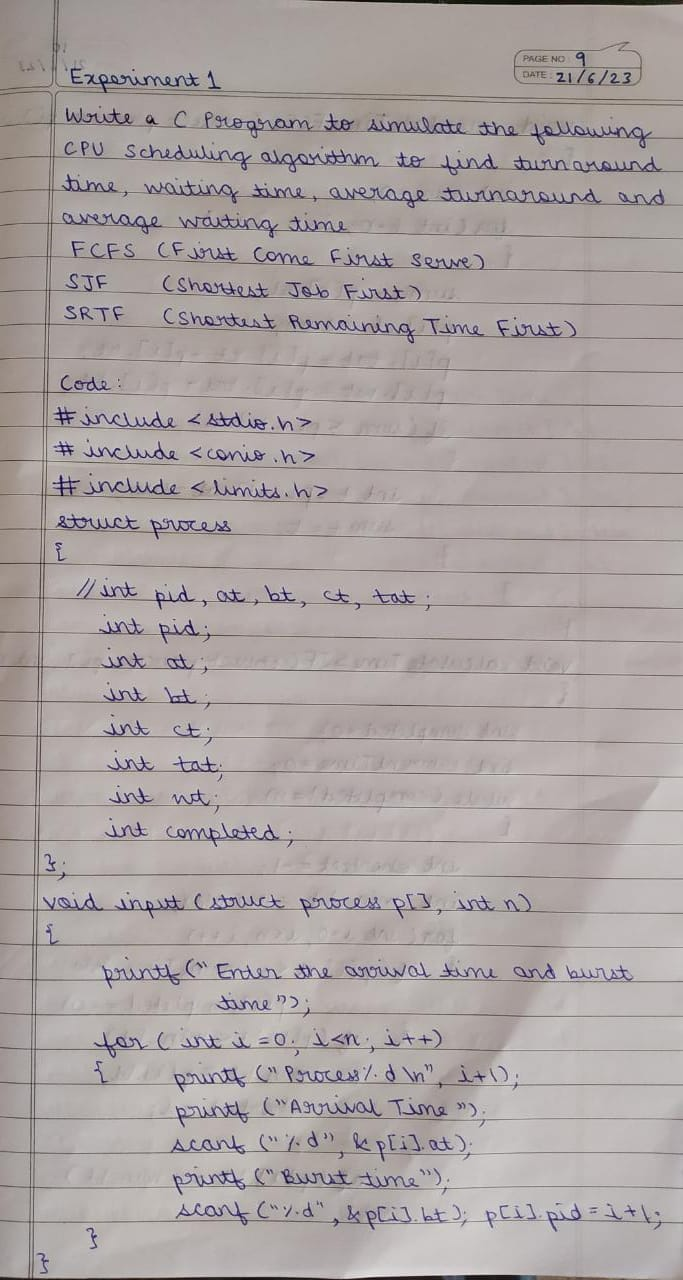 PAGE NO: 9
DATE: 21/6/23
Experiment 1
Write a C Program to simulate the following
CPU scheduling algorithm to find turnaround
time, waiting time, average turnaround and
average waiting time
FCFS (First Come First Serve)
SJF (Shortest Job First)
SRTF (Shortest Remaining Time First)
Code:
#include <stdio.h>
# include <conio.h>
#include <limits.h>
struct process
{
//int pid, at, bt, ct, tat;
int pid;
int at;
int bt;
int ct;
int tat;
int wt;
int completed;
};
void input (struct process p[], int n)
{
printf (" Enter the arrival time and burst
time");
for ( int i = 0; i<n; i++)
{ printf (" Process %d \n", i+1);
printf ("Arrival Time ");
scanf ("%d", &p[i].at);
printf ("Burst time");
scanf ("%d", &p[i].bt); p[i].pid = i+1;
}
}